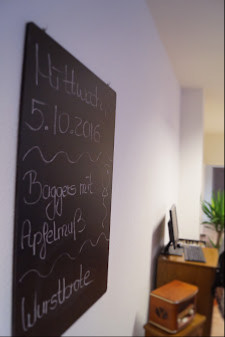 Mittwoch
5.10.2016
Baggers mit
Apfelmuß
Wurstbrote